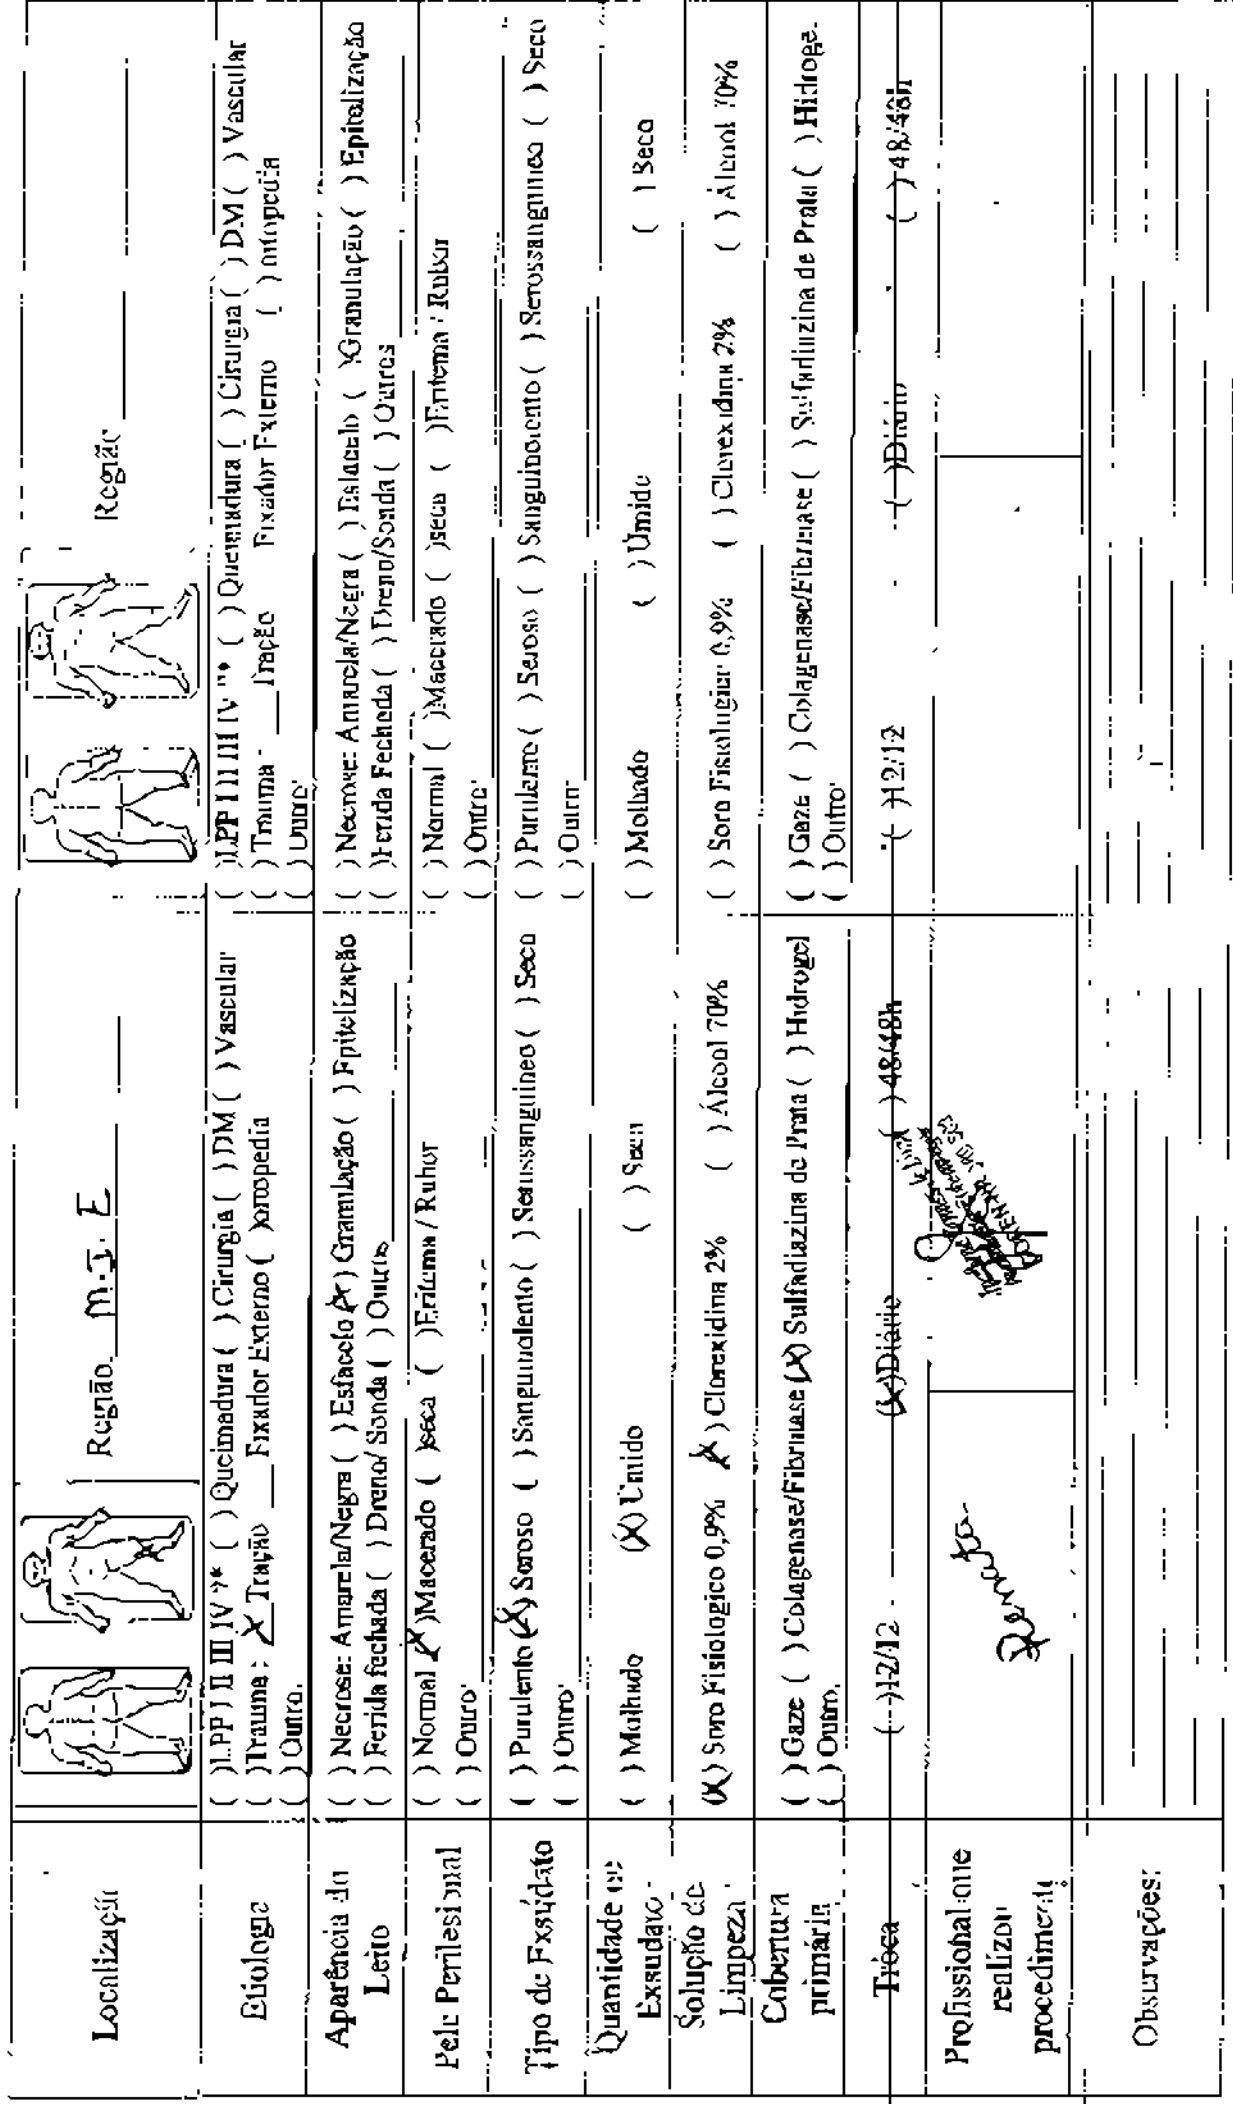 Localização
Região. M.I.E
Região
Etiologia
( )LPP I II III IV ?* ( ) Queimadura ( ) Cirurgia ( ) DM ( ) Vascular
( )Trauma: X Tração __ Fixador Externo ( )ortopedia
( ) Outro.
( )LPP I II III IV ( ) Queimadura ( ) Cirurgia ( ) DM ( ) Vascular
( ) Trauma __ Tração Fixador Externo ( ) ortopedia
( ) Outro:
Aparência do Leito
( ) Necrose: Amarela/Negra ( ) Esfacelo (X) Granulação ( ) Epitelização
( ) Ferida fechada ( ) Dreno/ Sonda ( ) Outros
( ) Necrose: Amarela/Negra ( ) Esfacelo ( )Granulação ( ) Epitelização
( )Ferida Fechada ( ) Dreno/Sonda ( ) Outros
Pele Perilesional
( ) Normal (X)Macerado ( )seca ( )Eritema / Rubor
( ) Outro:
( ) Normal ( )Macerado ( )seca ( )Eritema / Rubor
( ) Outro:
Tipo de Exsudato
( ) Purulento (X) Seroso ( ) Sanguinolento ( ) Serossanguineo ( ) Seco
( ) Outro:
( ) Purulento ( ) Seroso ( ) Sanguinolento ( ) Serossanguineo ( ) Seco
( ) Outro:
Quantidade de Exsudato
( ) Molhado (X) Úmido ( ) Seco
( ) Molhado ( ) Úmido ( ) Seco
Solução de Limpeza
(X) Soro Fisiologico 0,9% (X) Clorexidina 2% ( ) Álcool 70%
( ) Soro Fisiologico 0,9% ( ) Clorexidina 2% ( ) Álcool 70%
Cobertura primária
( ) Gaze ( ) Colagenase/Fibrinase (X) Sulfadiazina de Prata ( ) Hidrogel
( ) Outro.
( ) Gaze ( ) Colagenase/Fibrinase ( ) Sulfadiazina de Prata ( ) Hidroge.
( ) Outro:
Troca
( )12/12 (X)Diário ( )48/48h
( )12/12 ( )Diário ( )48/48h
Profissional que realizou procedimento
Renato
Observações: